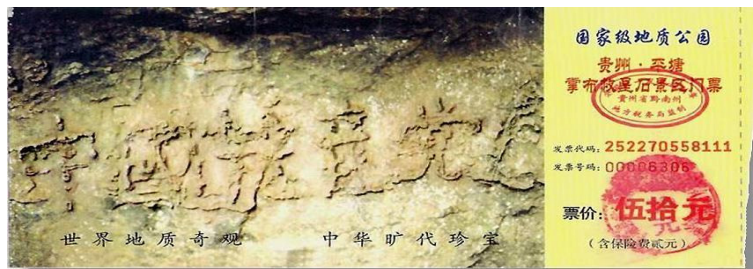 中國共產党
世界地质奇观 中华旷代珍宝
国家级地质公园
贵州·平塘
掌布救星石景区门票
贵州省黔南州
地方税务局监制
发票代码：252270558111
发票号码：00006306
票价：伍拾元
（含保险费贰元）